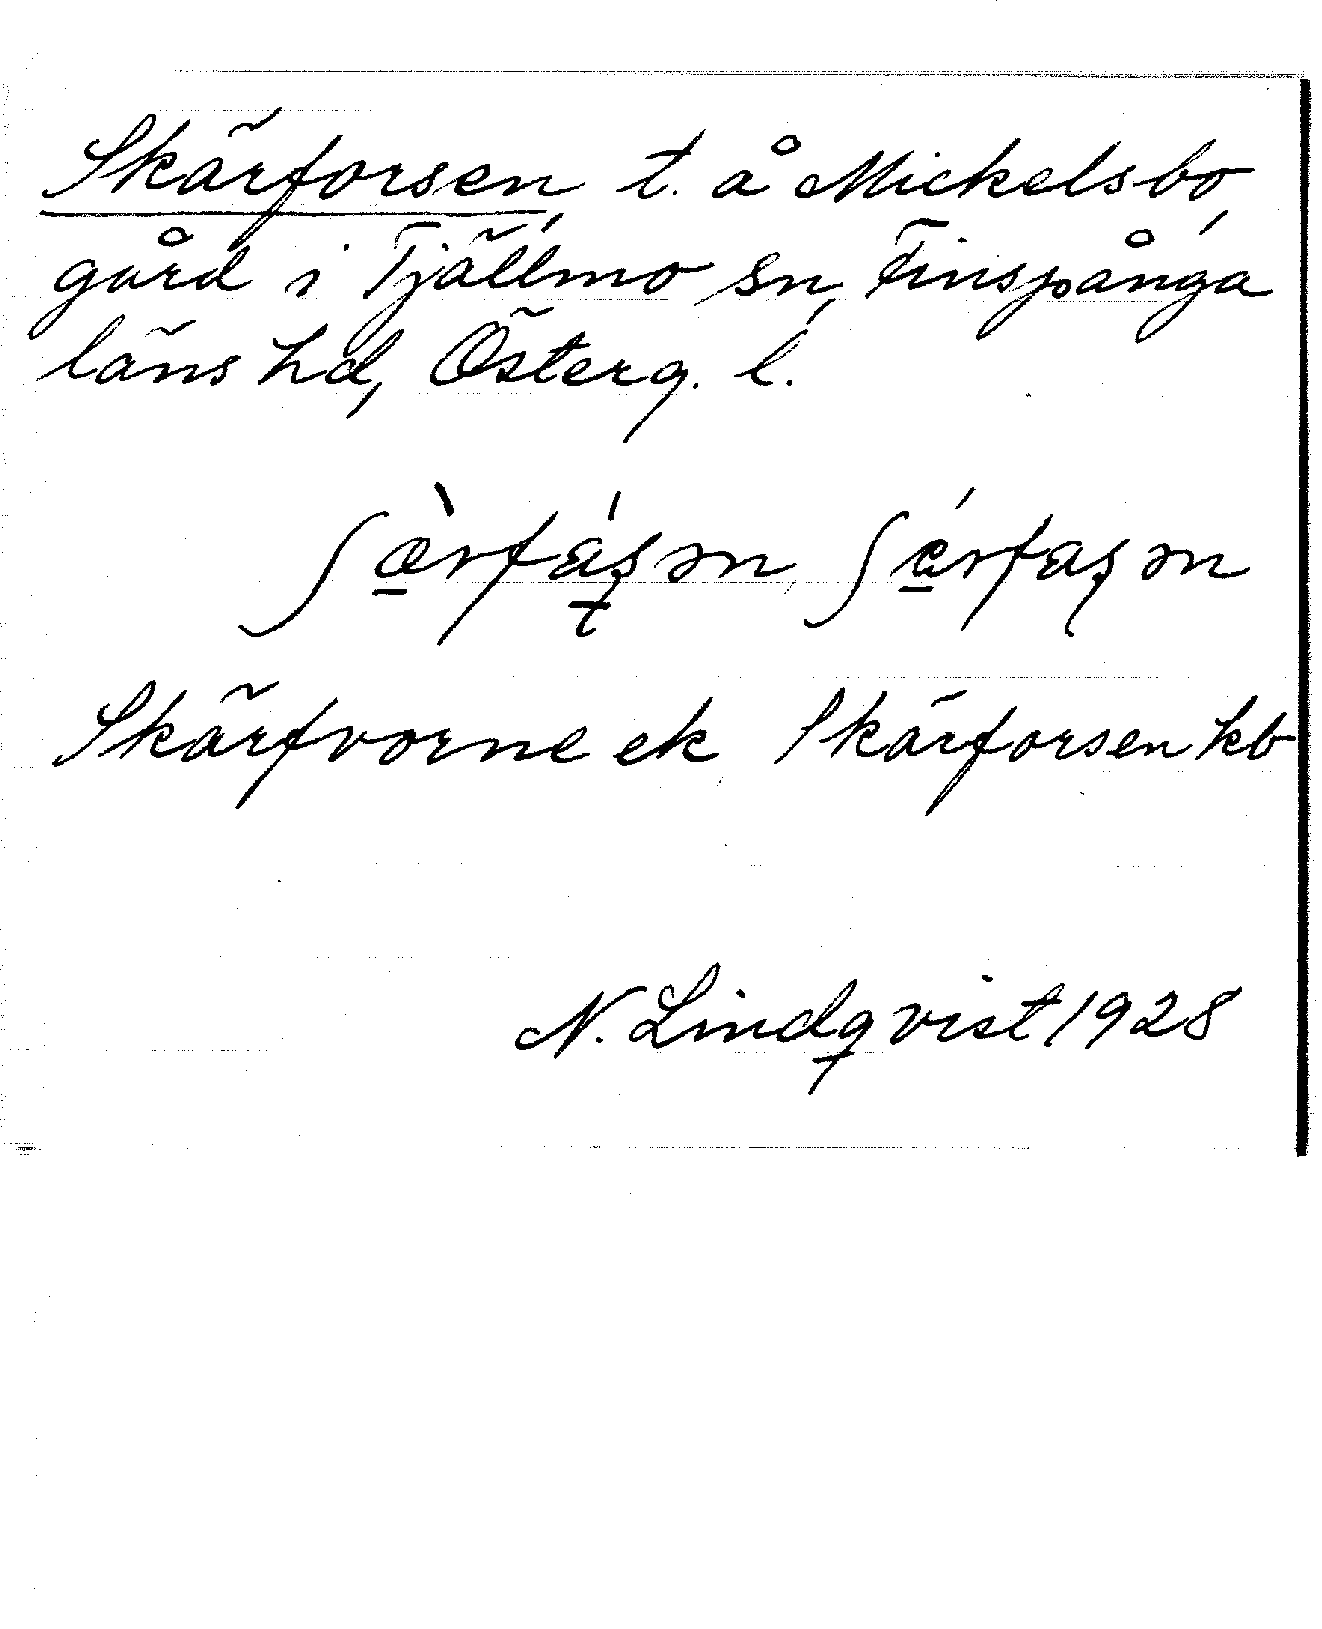 Skärforsen, t. å Mickelsbo,
gård i Tjällmo sn, Finspånga
läns hd, Österg. l.
Skärfvorne ek Skärforsen kb
N. Lindqvist 1928